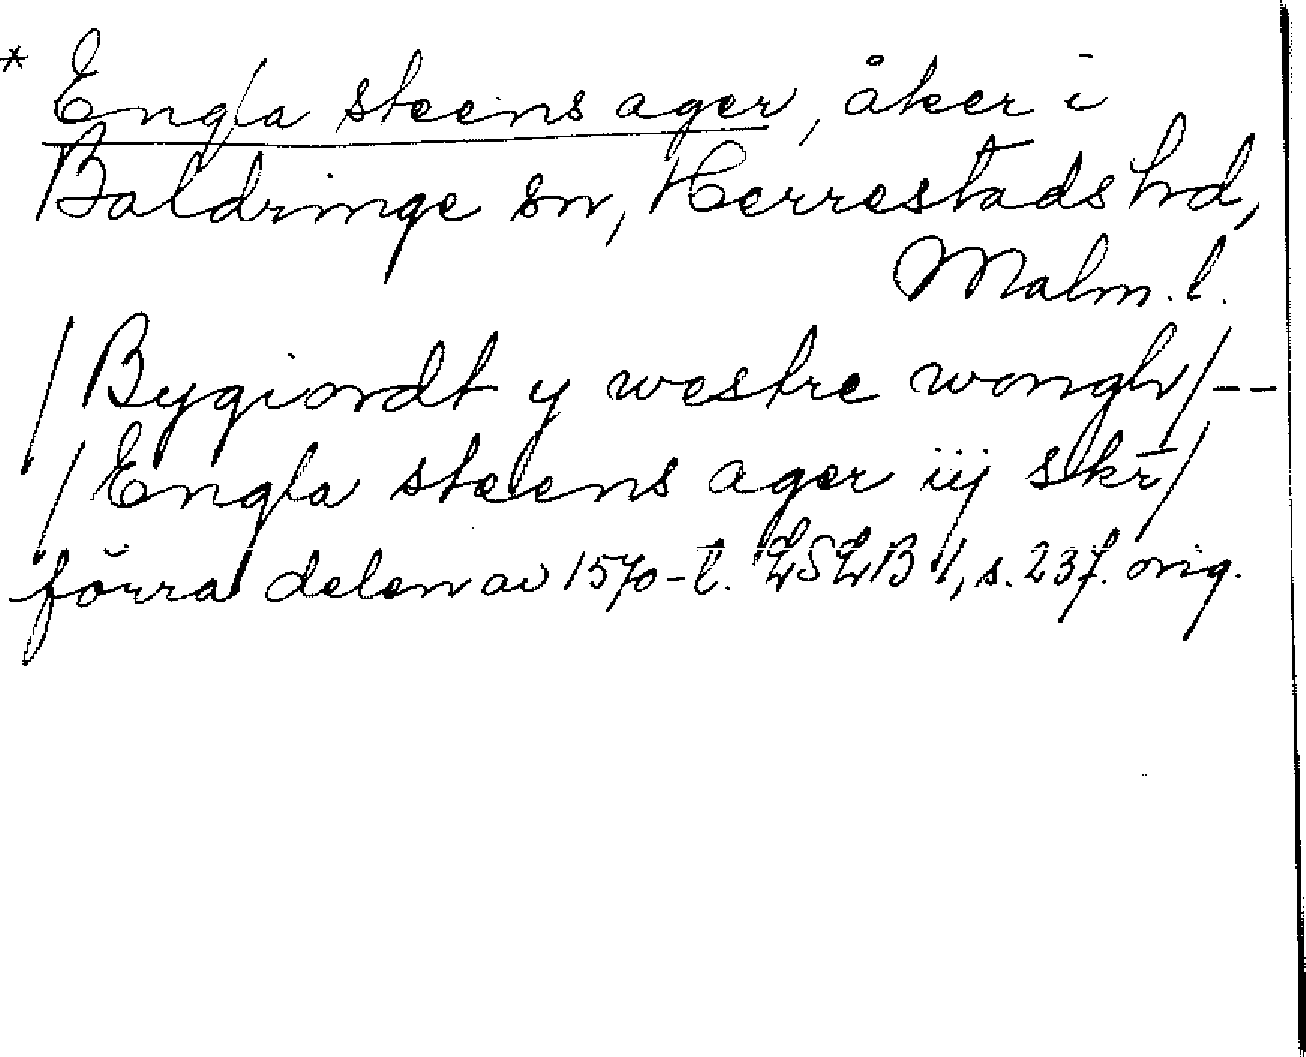 * Engla steens ager, åker i
Baldringe sn, Herrestads hd,
Malm. l.
/Bygiordt y westre wongh/--
/Engla steens ager iij skr̄/
förra delen av 1570-t. LSLB 1, s. 237. orig.